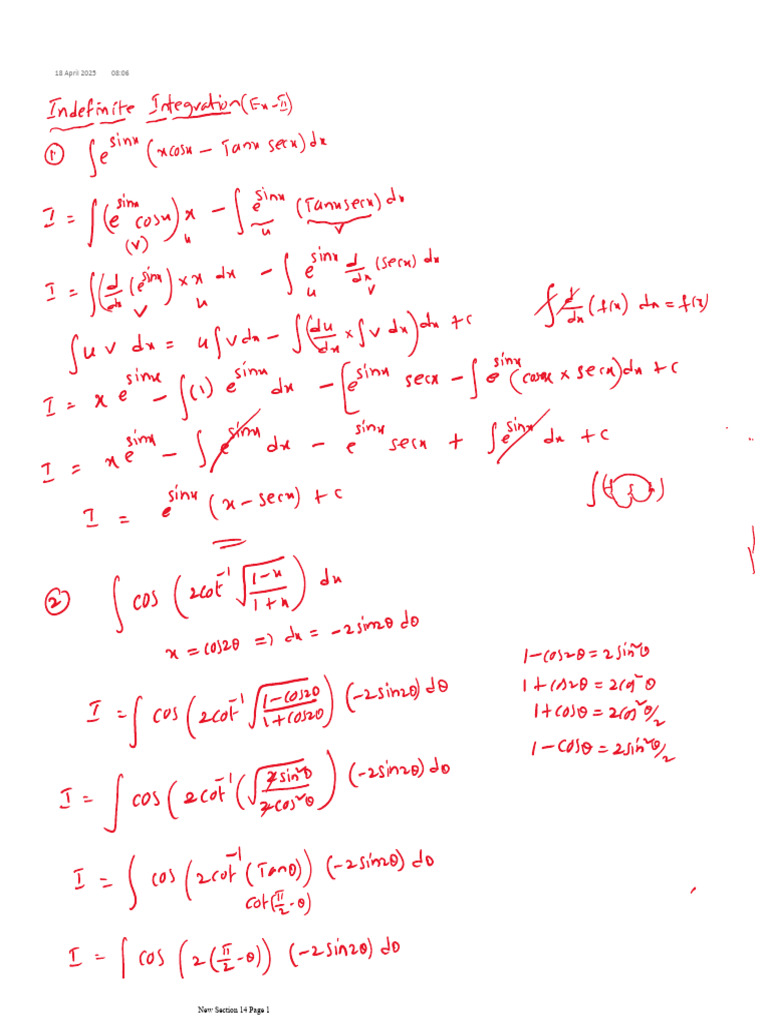 18 April 2025 08:06
Indefinite Integration (Ex-II)
① ∫e^sinx (xcosx – Tanx secx)dx
I = ∫(e^sinx cosx) x – ∫e^sinx (Tanxsecx) dx
(v) u u v
I = ∫(d/dx (e^sinx) × x dx – ∫e^sinx d/dx (secx) dx
v u u v
∫d/dx (f(x)) dx = f(x)
∫u v dx = u∫vdx – ∫(du/dx × ∫v dx)dx + c
I = x e^sinx – ∫(1) e^sinx dx – [e^sinx secx – ∫e^sinx (cosx × secx)dx + c
I = xe^sinx – ∫e^sinx dx – e^sinx secx + ∫e^sinx dx + c
I = e^sinx (x – secx) + c
② ∫cos (2cot^-1 √(1-x/1+x)) dx
x = cos2θ => dx = -2sin2θ dθ
1-cos2θ = 2sin²θ
1+cos2θ = 2cos²θ
1+cosθ = 2cos²θ/2
1-cosθ = 2sin²θ/2
I = ∫cos (2cot^-1 √(1-cos2θ/1+cos2θ)) (-2sin2θ) dθ
I = ∫cos (2cot^-1 (√(2sin²θ/2cos²θ)) (-2sin2θ) dθ
I = ∫cos (2cot^-1 (Tanθ)) (-2sin2θ) dθ
cot(π/2 - θ)
I = ∫cos (2(π/2 - θ)) (-2sin2θ) dθ
New Section 14 Page 1